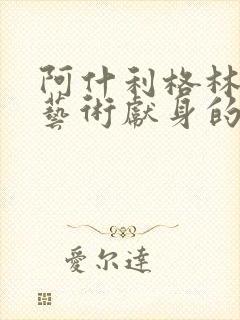 阿什利格林
藝術獻身的
愛尔達